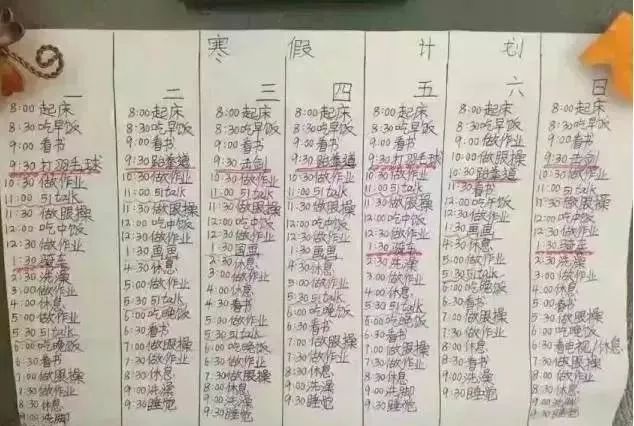 寒假计划
一
8:00起床
8:30吃早饭
9:00看书
9:30打羽毛球
10:30做作业
11:00 51talk
11:30做眼操
12:00吃中饭
12:30做作业
1:30骑车
2:30洗澡
3:30做作业
4:00休息
4:30看书
5:00做作业
5:30 51talk
6:00吃晚饭
6:30看书
7:00做眼操
7:30做作业
8:30休息
9:00洗脚
二
8:00起床
8:30吃早饭
9:00看书
9:30跆拳道
10:30做作业
11:00 51talk
11:30做眼操
12:00吃中饭
12:30做作业
1:30画画
4:30休息
5:00做作业
5:30 51talk
6:00吃晚饭
6:30看书
7:00做眼操
7:30做作业
8:30休息
9:00洗澡
9:30睡觉
三
8:00起床
8:30吃早饭
9:00看书
9:30击剑
10:30做作业
11:00 51talk
11:30做眼操
12:00吃中饭
12:30做作业
1:30画画
休息
做作业
看书
做作业
51talk
6:00吃晚饭
看书
做眼操
休息
9:00洗澡
9:30睡觉
四
8:00起床
8:30吃早饭
9:00看书
9:30跆拳道
10:30做作业
11:00 51talk
11:30做眼操
12:00吃中饭
12:30做作业
1:30画画
4:30休息
5:00做作业
5:30 51talk
6:00吃晚饭
6:30看书
7:00做眼操
7:30做作业
8:30休息
9:00洗脚
9:30睡觉
五
8:00起床
8:30吃早饭
9:00看书
9:30打羽毛球
10:30做作业
11:00 51talk
11:30做眼操
12:00吃中饭
12:30做作业
1:30骑车
2:30洗澡
做作业
休息
看书
做作业
51talk
6:00吃晚饭
看书
7:00做眼操
做作业
休息
洗脚
9:30睡觉
六
8:00起床
8:30吃早饭
9:00看书
做眼操
10:30跆拳道
11:30看书
12:00吃中饭
12:30做作业
1:30画画
4:30休息
5:00做作业
5:30 51talk
6:00吃晚饭
6:30看书
7:00做眼操
7:30做作业
看书
9:00洗澡
9:30睡觉
日
8:00起床
8:30吃早饭
9:00看书
9:30击剑
10:30做作业
51talk
11:30做眼操
12:00吃中饭
12:30做作业
1:30骑车
2:30洗澡
做作业
休息
看书
做作业
51talk
6:00吃晚饭
6:30看电视/休息
做眼操
做作业
休息
9:00洗脚
9:30睡觉